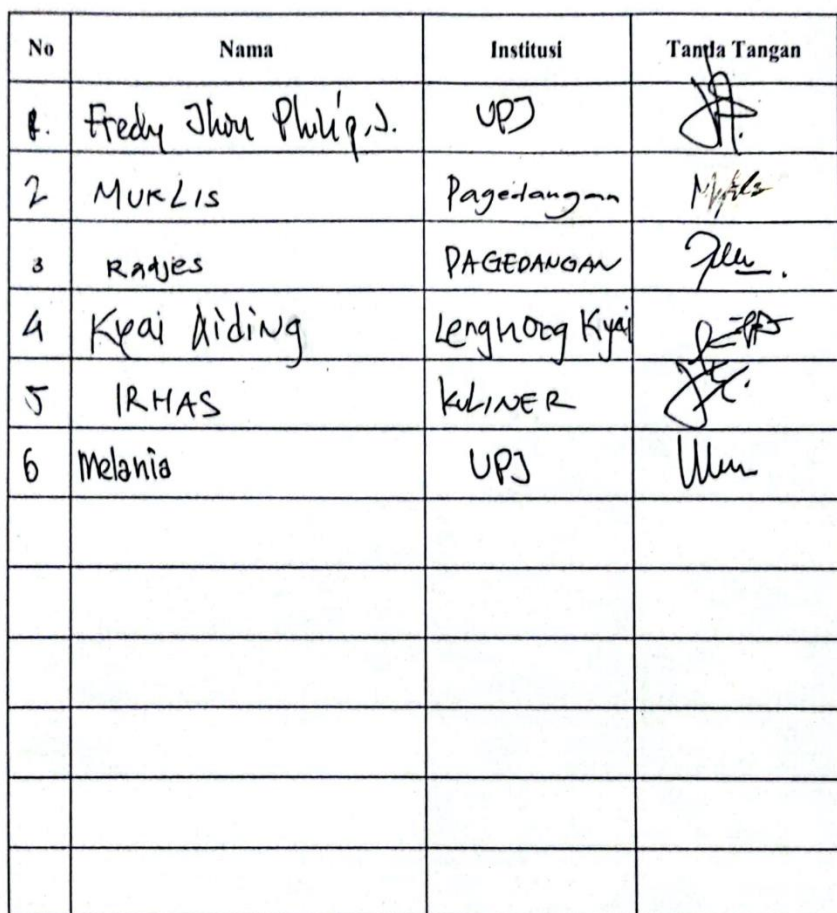 No Nama Institusi Tanda Tangan
1. Fredy Jhon Philip.S. UPJ
2 MUKLIS Pagedangan
3 Radjes PAGEDANGAN
4 Kyai Aiding Kyai
5 IRHAS KULINER
6 Melania UPJ